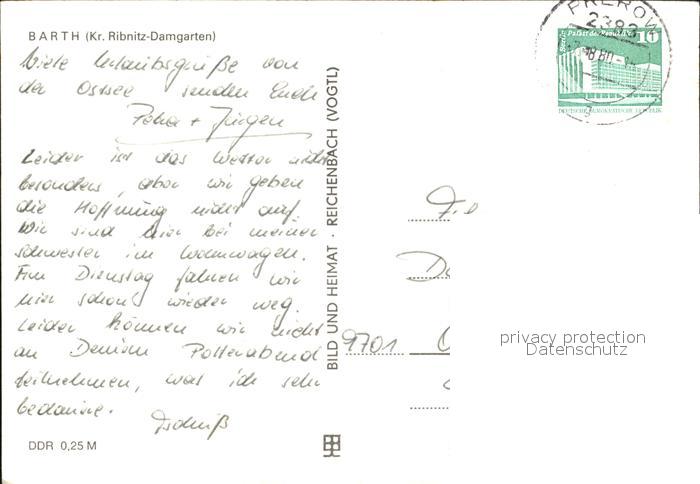 BARTH (Kr. Ribnitz-Damgarten)
Viele Urlaubsgrüße von
der Ostsee senden Euch
Petra + Jürgen
Leider ist das Wetter nicht
besonders, aber wir geben
die Hoffnung nicht auf.
Wir sind hier bei meiner
Schwester im Wohnwagen.
Am Dienstag fahren wir
hier schon wieder weg.
Leider können wir nicht
an Deinem Polterabend
teilnehmen, was ich sehr
bedaure.
Tschüß
DDR 0,25 M
BILD UND HEIMAT · REICHENBACH (VOGTL)
PREROW
2383
10
Berlin Palast der Republik
DEUTSCHE DEMOKRATISCHE REPUBLIK
9701
privacy protection
Datenschutz